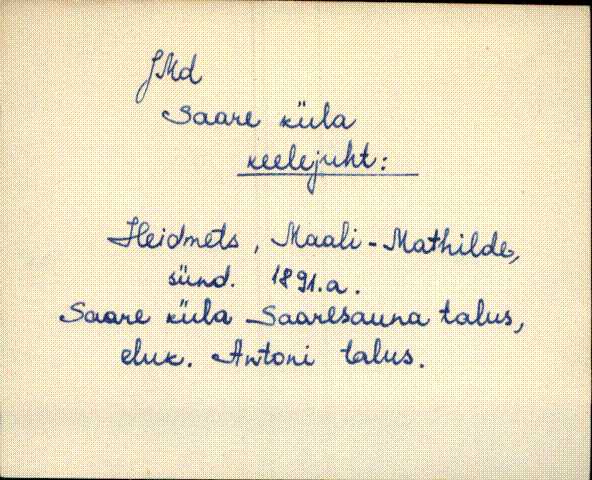 JMd
Saare küla
keelejuht:
Heidmets, Maali-Mathilde,
sünd. 1891.a.
Saare küla Saaresauna talus,
eluk. Antoni talus.